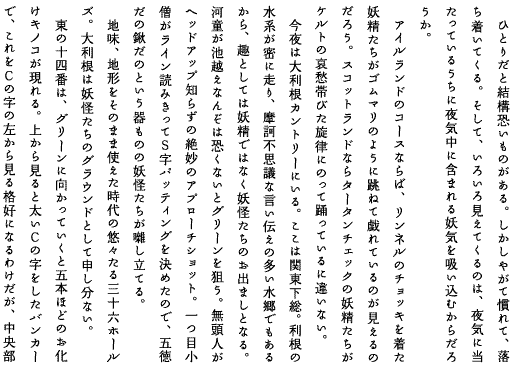 ひとりだと結構恐いものがある。しかしやがて慣れて、落
ち着いてくる。そして、いろいろ見えてくるのは、夜気に当
たっているうちに夜気中に含まれる妖気を吸い込むからだろ
うか。
　アイルランドのコースならば、リンネルのチョッキを着た
妖精たちがゴムマリのように跳ねて戯れているのが見えるの
だろう。スコットランドならタータンチェックの妖精たちが
ケルトの哀愁帯びた旋律にのって踊っているに違いない。
　今夜は大利根カントリーにいる。ここは関東下総。利根の
水系が密に走り、摩訶不思議な言い伝えの多い水郷でもある
から、趣としては妖精ではなく妖怪たちのお出ましとなる。
河童が池越えなんぞは恐くないとグリーンを狙う。無頭人が
ヘッドアップ知らずの絶妙のアプローチショット。一つ目小
僧がライン読みきってS字パッティングを決めたので、五徳
だの鍬だのという器ものの妖怪たちが囃し立てる。
　地味、地形をそのまま使えた時代の悠々たる三十六ホール
ズ。大利根は妖怪たちのグラウンドとして申し分ない。
　東の十四番は、グリーンに向かっていくと五本ほどのお化
けキノコが現れる。上から見ると太いCの字をしたバンカー
で、これをCの字の左から見る格好になるわけだが、中央部